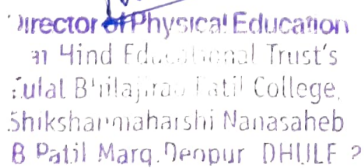 Director of Physical Education
Hind Educational Trust's
College,
Shikshanmaharshi Nanasaheb
Patil Marg, Deopur, DHULE